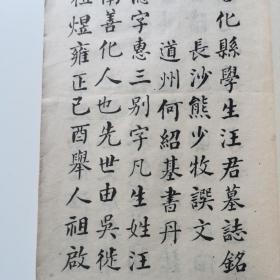 化縣學生汪君墓誌銘
長沙熊少牧譔文
道州何紹基書丹
字憓三别字凡生姓汪
善化人也先世由吳徙
煜雍正己酉舉人祖啟